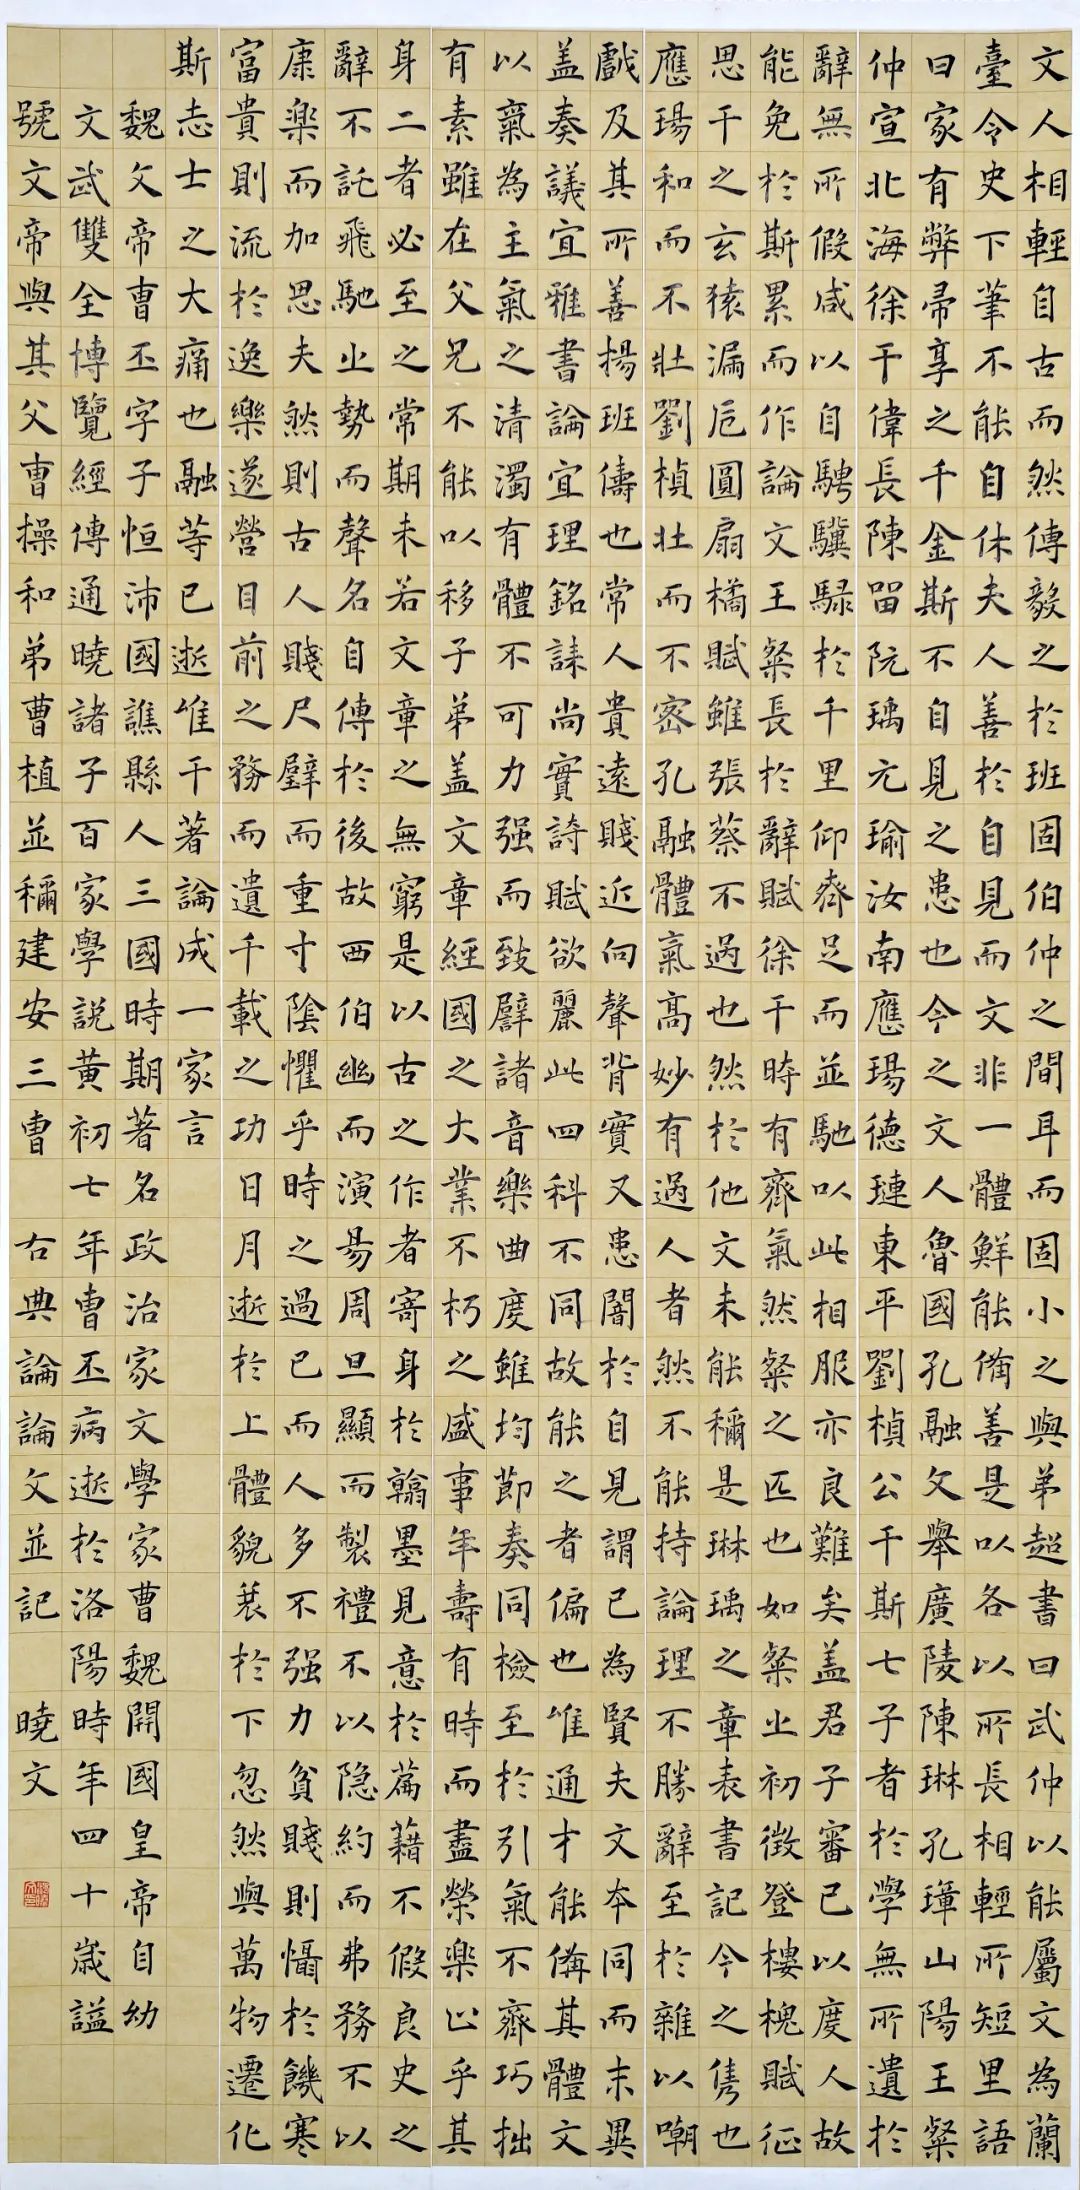 文人相輕自古而然傳毅之於班固伯仲之間耳而固小之與弟超書曰武仲以能屬文為蘭
臺令史下筆不能自休夫人善於自見而文非一體鮮能備善是以各以所長相輕所短里語
曰家有弊帚享之千金斯不自見之患也今之文人魯國孔融文舉廣陵陳琳孔璋山陽王粲
仲宣北海徐干偉長陳留阮瑀元瑜汝南應瑒德璉東平劉楨公干斯七子者於學無所遺於
辭無所假咸以自騁驥騄於千里仰齊足而並馳以此相服亦良難矣蓋君子審己以度人故
能免於斯累而作論文王粲長於辭賦徐干時有齊氣然粲之匹也如粲之初徵登樓槐賦征
思干之玄猿漏卮圓扇橘賦雖張蔡不過也然於他文未能稱是琳瑀之章表書記今之雋也
應瑒和而不壯劉楨壯而不密孔融體氣高妙有過人者然不能持論理不勝辭至於雜以嘲
戲及其所善揚班儔也常人貴遠賤近向聲背實又患闇於自見謂己為賢夫文本同而末異
蓋奏議宜雅書論宜理銘誄尚實詩賦欲麗此四科不同故能之者偏也唯通才能備其體文
以氣為主氣之清濁有體不可力强而致譬諸音樂曲度雖均節奏同檢至於引氣不齊巧拙
有素雖在父兄不能以移子弟蓋文章經國之大業不朽之盛事年壽有時而盡榮樂止乎其
身二者必至之常期未若文章之無窮是以古之作者寄身於翰墨見意於篇籍不假良史之
辭不託飛馳之勢而聲名自傳於後故西伯幽而演易周旦顯而製禮不以隱約而弗務不以
康樂而加思夫然則古人賤尺璧而重寸陰懼乎時之過已而人多不强力貧賤則懾於饑寒
富貴則流於逸樂遂營目前之務而遺千載之功日月逝於上體貌衰於下忽然與萬物遷化
斯志士之大痛也融等已逝唯干著論成一家言
魏文帝曹丕字子恒沛國譙縣人三國時期著名政治家文學家曹魏開國皇帝自幼
文武雙全博覽經傳通曉諸子百家學說黃初七年曹丕病逝於洛陽時年四十歲謚
號文帝與其父曹操和弟曹植並稱建安三曹 右典論論文並記 曉文